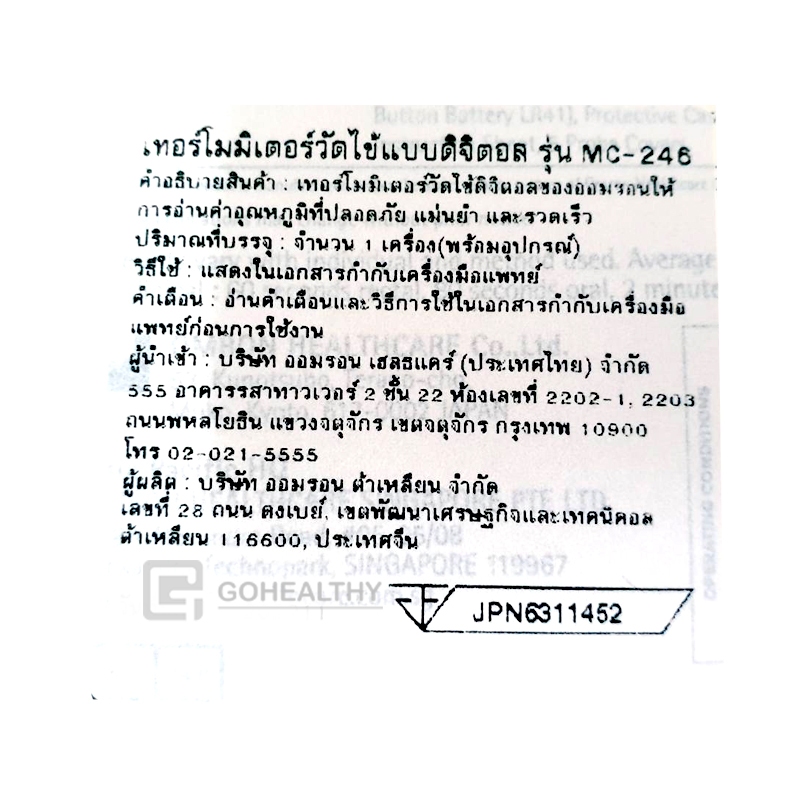 Button Battery LR41), Protective Cas
เทอร์โมมิเตอร์วัดไข้แบบดิจิตอล รุ่น MC-246
คำอธิบายสินค้า : เทอร์โมมิเตอร์วัดไข้ดิจิตอลของออมรอนให้
การอ่านค่าอุณหภูมิที่ปลอดภัย แม่นยำ และรวดเร็ว
ปริมาณที่บรรจุ : จำนวน 1 เครื่อง(พร้อมอุปกรณ์)
วิธีใช้ : แสดงในเอกสารกำกับเครื่องมือแพทย์
คำเตือน : อ่านคำเตือนและวิธีการใช้ในเอกสารกำกับเครื่องมือ
แพทย์ก่อนการใช้งาน
ผู้นำเข้า : บริษัท ออมรอน เฮลธแคร์ (ประเทศไทย) จำกัด
555 อาคารรสาทาวเวอร์ 2 ชั้น 22 ห้องเลขที่ 2202-1, 2203
ถนนพหลโยธิน แขวงจตุจักร เขตจตุจักร กรุงเทพ 10900
โทร 02-021-5555
ผู้ผลิต : บริษัท ออมรอน ต้าเหลียน จำกัด
เลขที่ 28 ถนน ตงเบย์, เขตพัฒนาเศรษฐกิจและเทคนิคอล
ต้าเหลียน 116600, ประเทศจีน
Technopark, SINGAPORE 119967
GOHEALTHY
JPN6311452
OPERATING CONDITIONS